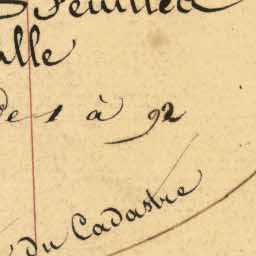 Feuilles
alle
de 1 à 92
du Cadastre